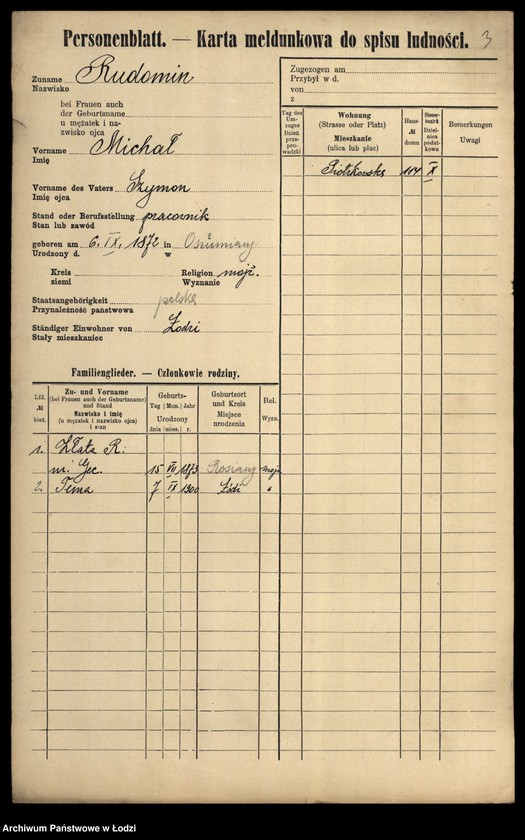 Personenblatt. — Karta meldunkowa do spisu ludności. 3
Zuname Rudomin
Nazwisko
bei Frauen auch
der Geburtsname
u mężatek i na-
zwisko ojca
Vorname Michał
Imię
Vorname des Vaters Szymon
Imię ojca
Stand oder Berufsstellung pracownik
Stan lub zawód
geboren am 6. IX. 1872 in Oszmiany
Urodzony d. w
Kreis Religion mojż.
ziemi Wyznanie
Staatsangehörigkeit polska
Przynależność państwowa
Ständiger Einwohner von Łodzi
Stały mieszkaniec
Zugezogen am
Przybył w d.
von
z
Tag des Um-zuges Dzień prze-prowadzki
Wohnung (Strasse oder Platz) Mieszkanie (ulica lub plac)
Haus- № domu
Steuer-bezirk Dziel-nica podat-kowa
Bemerkungen Uwagi
Piotrkowska 114 X
Familienglieder. — Członkowie rodziny.
Lfd. № bież.
Zu- und Vorname (bei Frauen auch der Geburtsname) und Stand Nazwisko i imię (u mężatek i nazwisko ojca) i stan
Geburts- Tag Mon. Jahr Urodzony dnia mies. r.
Geburtsort und Kreis Miejsce urodzenia
Rel. Wyzn.
1. Złata R.
ur. Gec. 15 VII 1873 Rosiany mojż.
2. Tema 7 IX 1900 Łódź "
Archiwum Państwowe w Łodzi